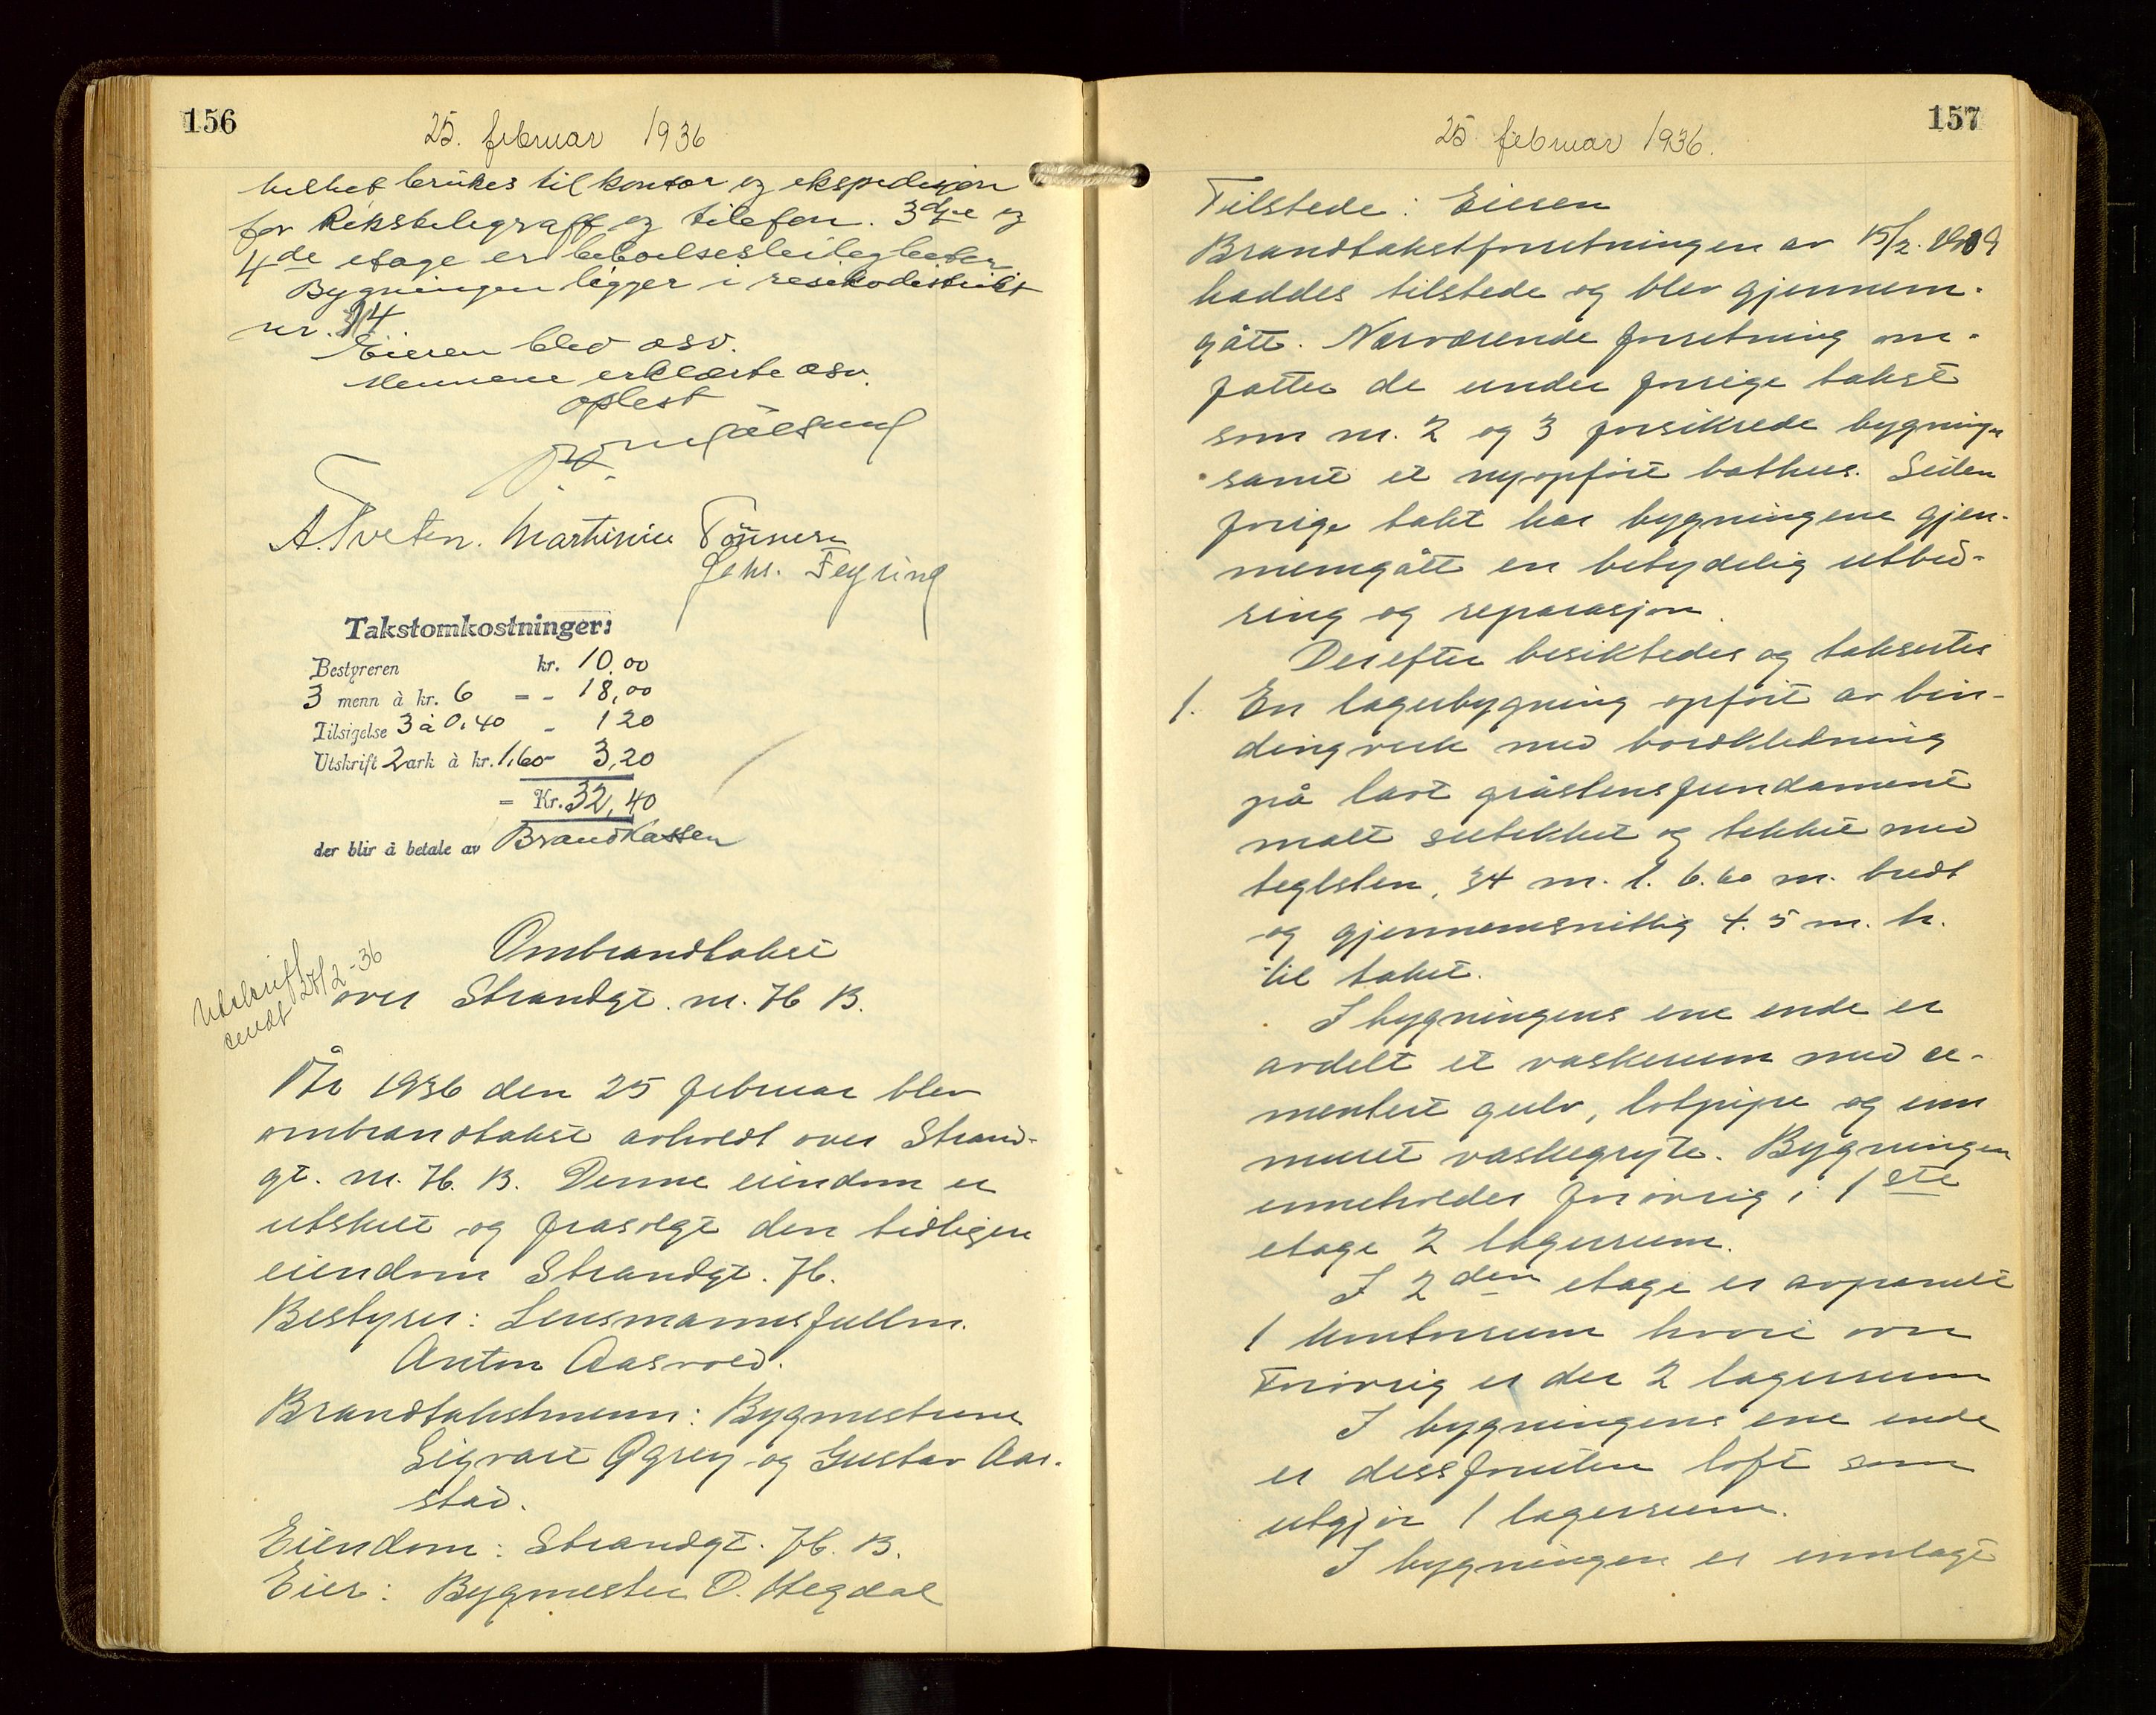 156
25. februar 1936
helhet brukes til kontor og ekspedisjon
for Rikstelegraff og telefon. 3dje og
4de etage er beboelsesleiligheter
Bygningen ligger i resikodistrikt
nr. 14
Eieren blev osv.
Mennene erklærte osv.
oplest
A. Tveten. Martinius Tönnesen
Johs. Feyling
Takstomkostninger:
Bestyreren kr. 10.00
3 menn à kr. 6 = - 18,00
Tilsigelse 3 à 0,40 - 1 20
Utskrift 2 ark à kr. 1,60 - 3,20
= Kr. 32,40
der blir å betale av Brandkassen
Utskrift
sendt 27/2-36
Ombrandtakst
over Strandgt. nr. 76 B.
År 1936 den 25 februar blev
ombrandtakst avholdt over Strand-
gt. nr. 76. B. Denne eiendom er
utskilt og frasolgt den tidligere
eiendom Strandgt. 76.
Bestyrer: Lensmannsfullm.
Anton Aasvold.
Brandtakstmenn: Bygmestrene
Sigvart Ogrey og Gustav Aar-
stad.
Eiendom: Strandgt. 76. B.
Eier: Bygmester O. Hegdal
157
25 februar 1936.
Tilstede: Eieren
Brandtakstforretningen av 15/2. 1909
haddes tilstede og blev gjennem-
gått. Nærværende forretning om-
fatter de under forrige takst
som nr. 2 og 3 forsikrede bygninger
samt et nyopført bathus. Siden
forrige takt har bygningene gjen-
nemgått en betydelig utbed-
ring og reparasjon.
Derefter besiktedes og takseertes
1. En lagerbygning opført av bin-
dingverk med bordkledning
på lavt gråstensfundament
malt sutekket og tekket med
teglsten, 34 m. l. 6.60 m. bredt
og gjennemsnitlig 4.5 m. h.
til taket.
I bygningens ene ende er
avdelt et vaskerum med ce-
mentert gulv, lotpipe og inn
muret vaskegryte. Bygningen
inneholder forøvrig i 1ste
etage 2 lagerrum.
I 2den etage er avpanelt
1 kontorrum hvori ovn
Forøvrig er der 2 lagerrum
I bygningens ene ende
er dessforuten loft som
utgjør 1 lagerrum.
I bygningen er innlagt